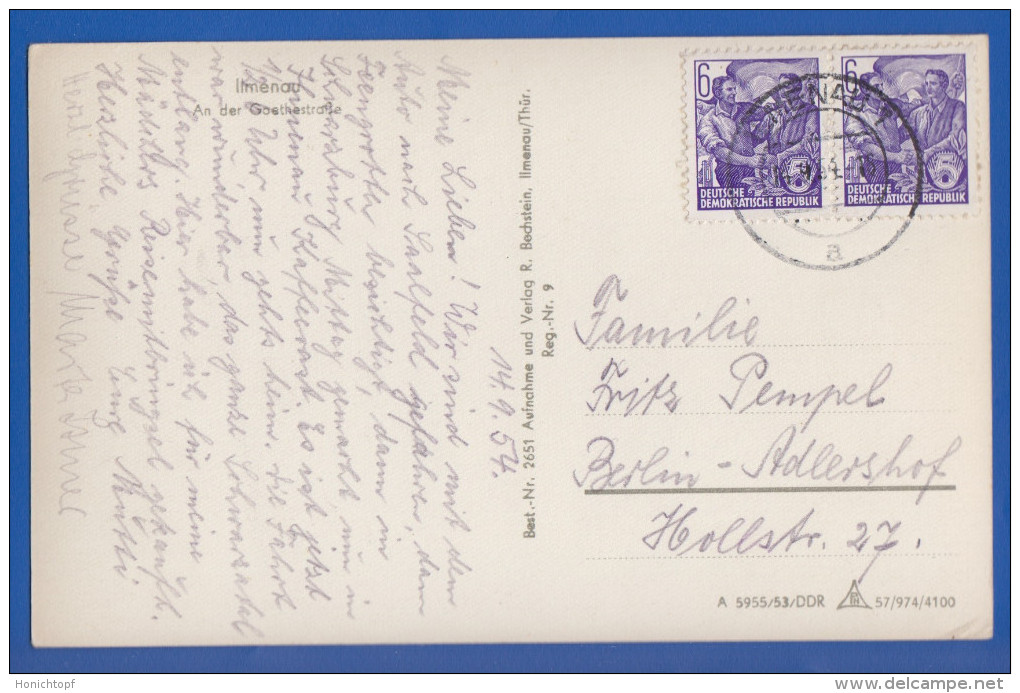 Ilmenau
An der Goethestraße
14.9.54.
Meine Lieben! Wir sind mit dem
Auto nach Saalfeld gefahren, dann
Feengrotten besichtigt, dann in
Schwarzburg Mittag gemacht, nun in
Ilmenau Kaffeerast. Es ist jetzt
Uhr, nun gehts heim. Die Fahrt
war wunderbar, das ganze Schwarzatal
entlang. Hier habe ich für meine
Mädels Reisemitbringsel gekauft.
Herzliche Grüße Eure Mutti
Herzl. Grüsse
Best.-Nr. 2651 Aufnahme und Verlag R. Bechstein, Ilmenau/Thür.
Reg.-Nr. 9
6
DEUTSCHE
DEMOKRATISCHE REPUBLIK
6
DEUTSCHE
DEMOKRATISCHE REPUBLIK
ILMENAU 1
a
Familie
Fritz Pempel
Berlin-Adlershof
Hollstr. 27.
A 5955/53/DDR 57/974/4100
Honichtopf
delcampe.net